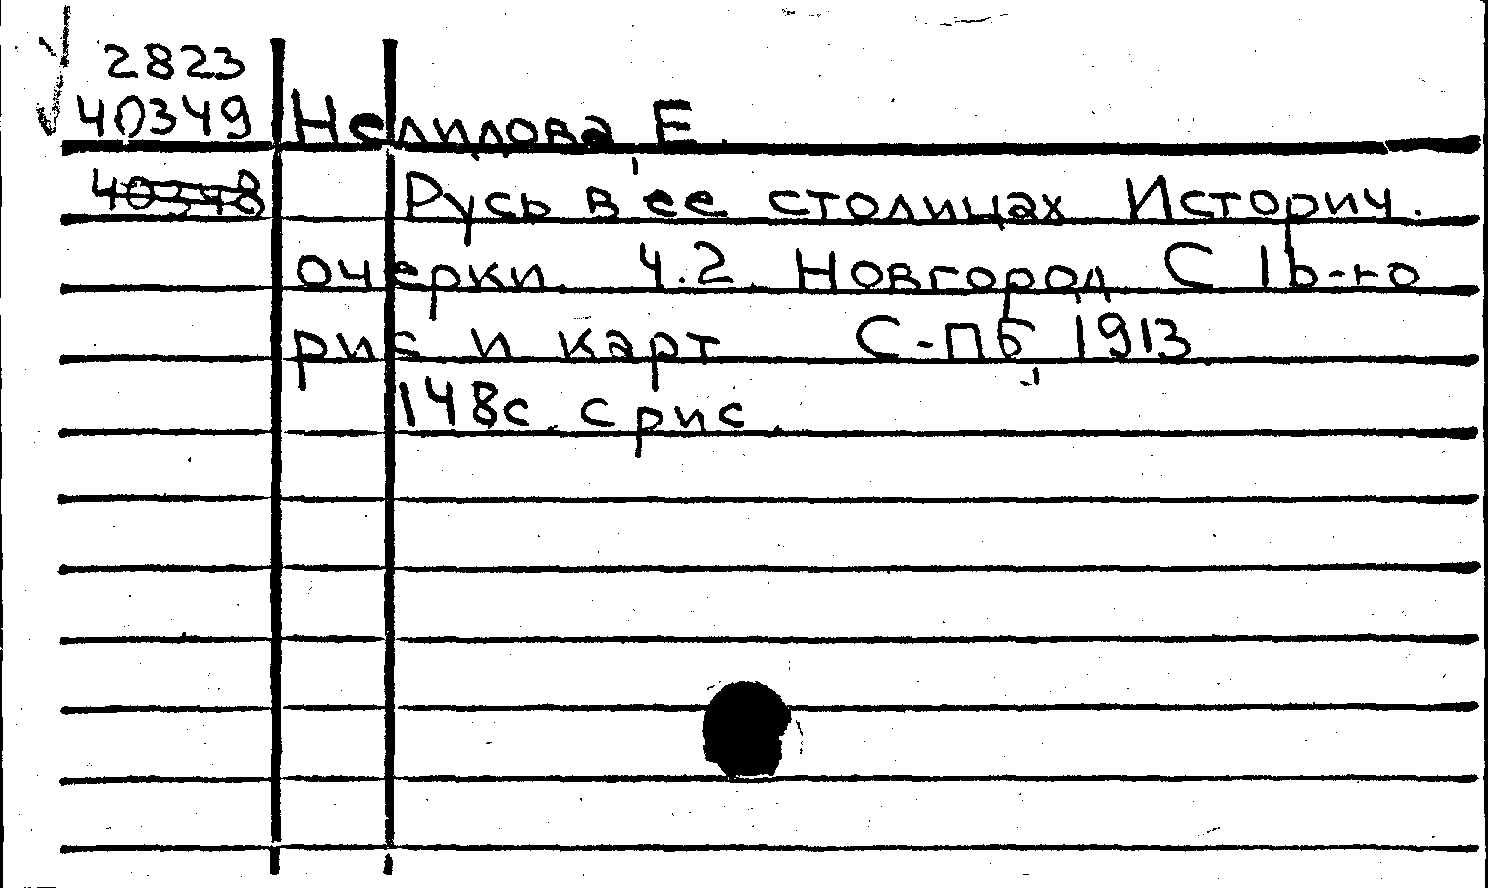 2823
40349 Нелидова, Е.
40348 Русь в ее столицах Историч.
очерки. Ч.2. Новгород С 16-ю
рис и карт С-Пб, 1913
148с. с рис.